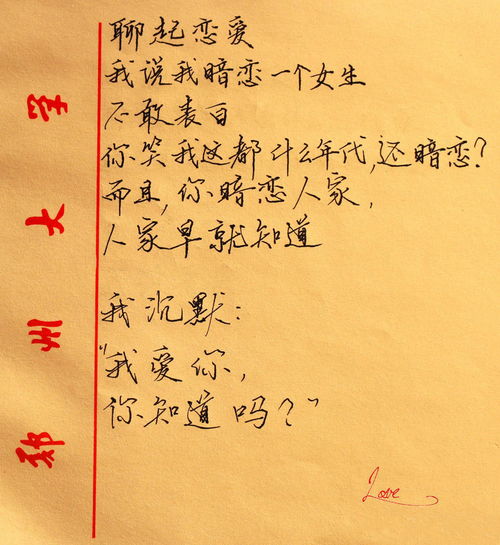 聊起恋爱
我说我暗恋一个女生
不敢表白
你笑我这都什么年代,还暗恋?
而且,你暗恋人家,
人家早就知道
我沉默:
"我爱你,
你知道吗?"
Love
郑州大学